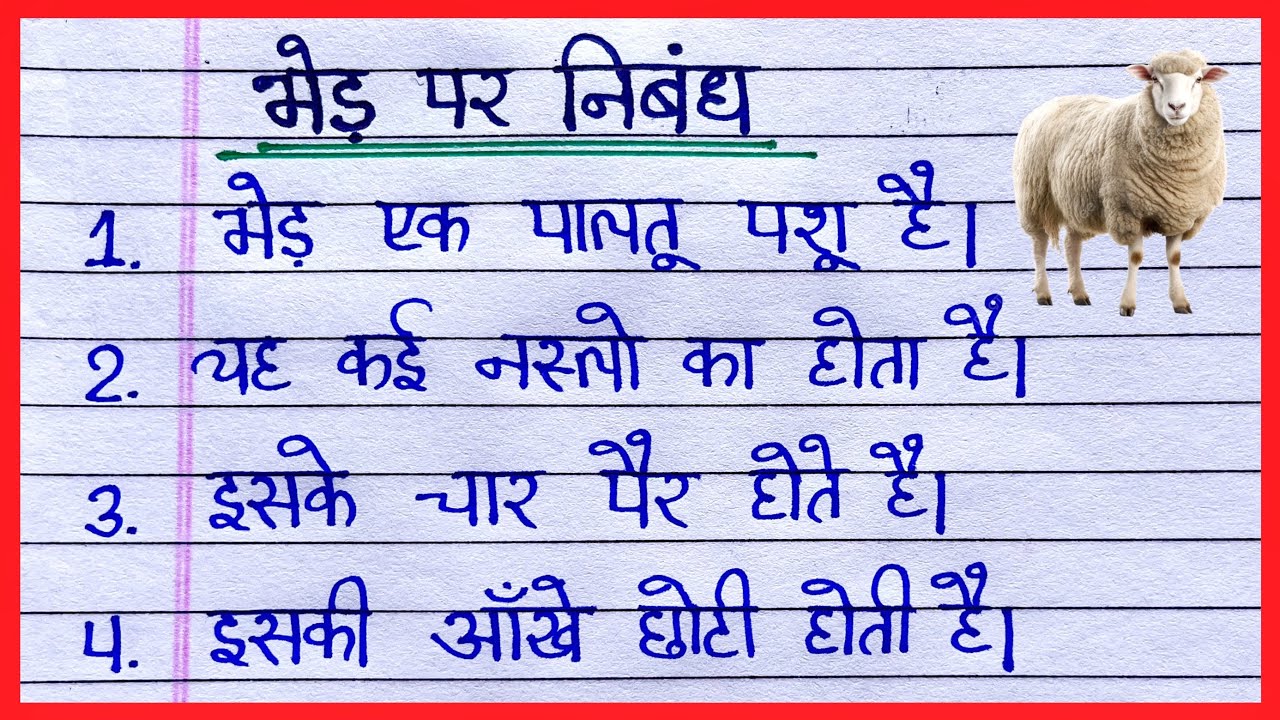 भेड़ पर निबंध
1. भेड़ एक पालतू पशू है।
2. यह कई नस्लो का होता है।
3. इसके चार पैर होते है।
4. इसकी आँखे छोटी होती है।